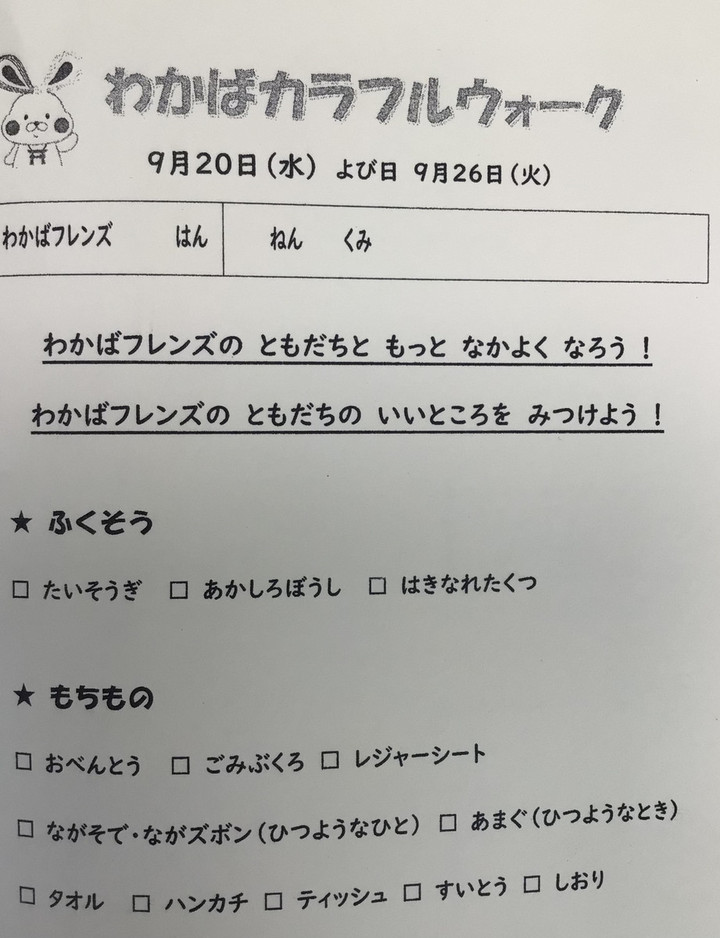 わかばカラフルウォーク
9月20日(水) よび日 9月26日(火)
わかばフレンズ はん ねん くみ
わかばフレンズの ともだちと もっと なかよく なろう !
わかばフレンズの ともだちの いいところを みつけよう !
★ ふくそう
□ たいそうぎ □ あかしろぼうし □ はきなれたくつ
★ もちもの
□ おべんとう □ ごみぶくろ □ レジャーシート
□ ながそで・ながズボン(ひつようなひと) □ あまぐ(ひつようなとき)
□ タオル □ ハンカチ □ ティッシュ □ すいとう □ しおり